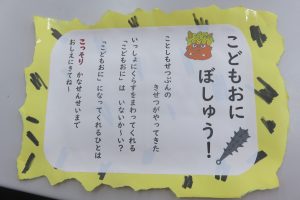 こどもおに
ぼしゅう！
ことしもせつぶんの
きせつがやってきた
いっしょにくらすをまわってくれる
「こどもおに」は いないか～い？
「こどもおに」になってくれるひとは
こっそり かなせんせいまで
おしえにきてね～